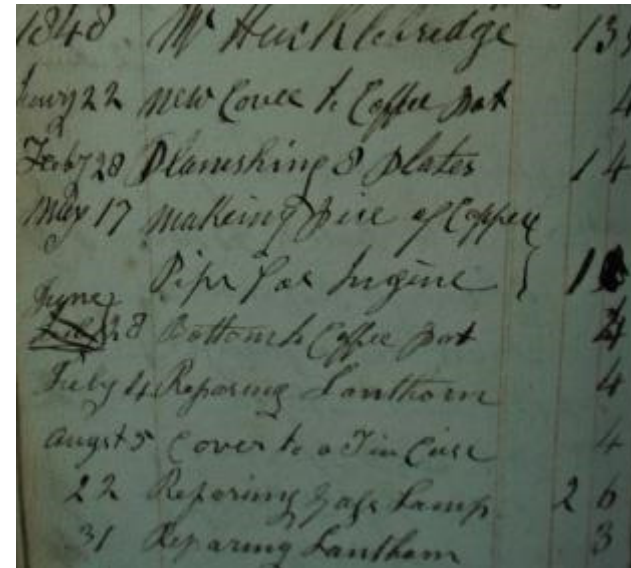 1848 Mr Hucklebridge 13
Jenuy 22 new Cover to Coffee pot 4
Feby 28 Planishing 8 plates 1 4
May 17 makeing pice of Copper
Pipe for Ingine } 1
June 28 Bottom to Coffee pot
July 4 Reparing Lanthorn 4
Augst 5 Cover to a Tin Case 4
22 Reparing Lamp 2 6
31 Reparing Lanthorn 3